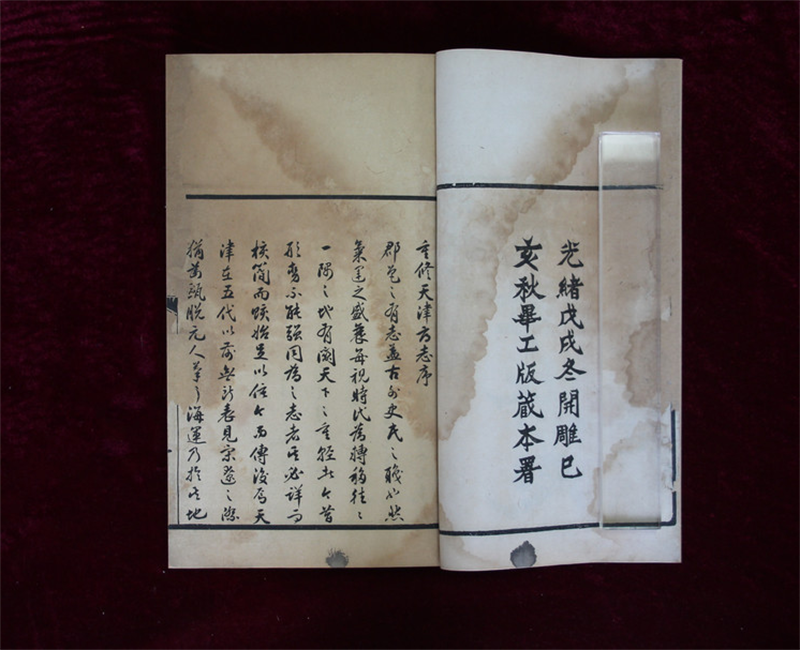 光緒戊戌冬開雕已
亥秋畢工版蔵本署
重修天津方志序
郡邑之有志蓋古外史氏之職也然
氣運之盛衰每視時代為轉移往往
一隅之地有關天下之重輕此今昔
形勢不能強同為之志者必詳而
核簡而賅始足以信今而傳後焉天
津在五代以前無所表見宋遼之際
猶甌脫元人海運乃於地